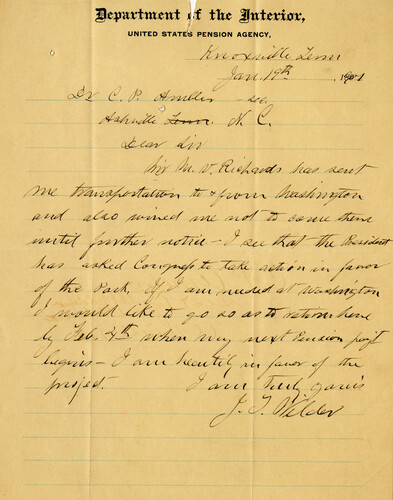 Department of the Interior,
UNITED STATES PENSION AGENCY,
Knoxville Tenn
Jan. 19th, 1901
Dr C. P. Ambler Sec.
Ashville Tenn. N. C.
Dear Sir
Mr M. V. Richards has sent
me transportation to & from Washington
and also wired me not to come there
until further notice – I see that the President
has asked Congress to take action in favor
of the Park. If I am needed at Washington
I would like to go so as to return here
by Feb. 4th when my next Pension paymt
begins – I am heartily in favor of the
project. I am truly yours
J. T. Wilder